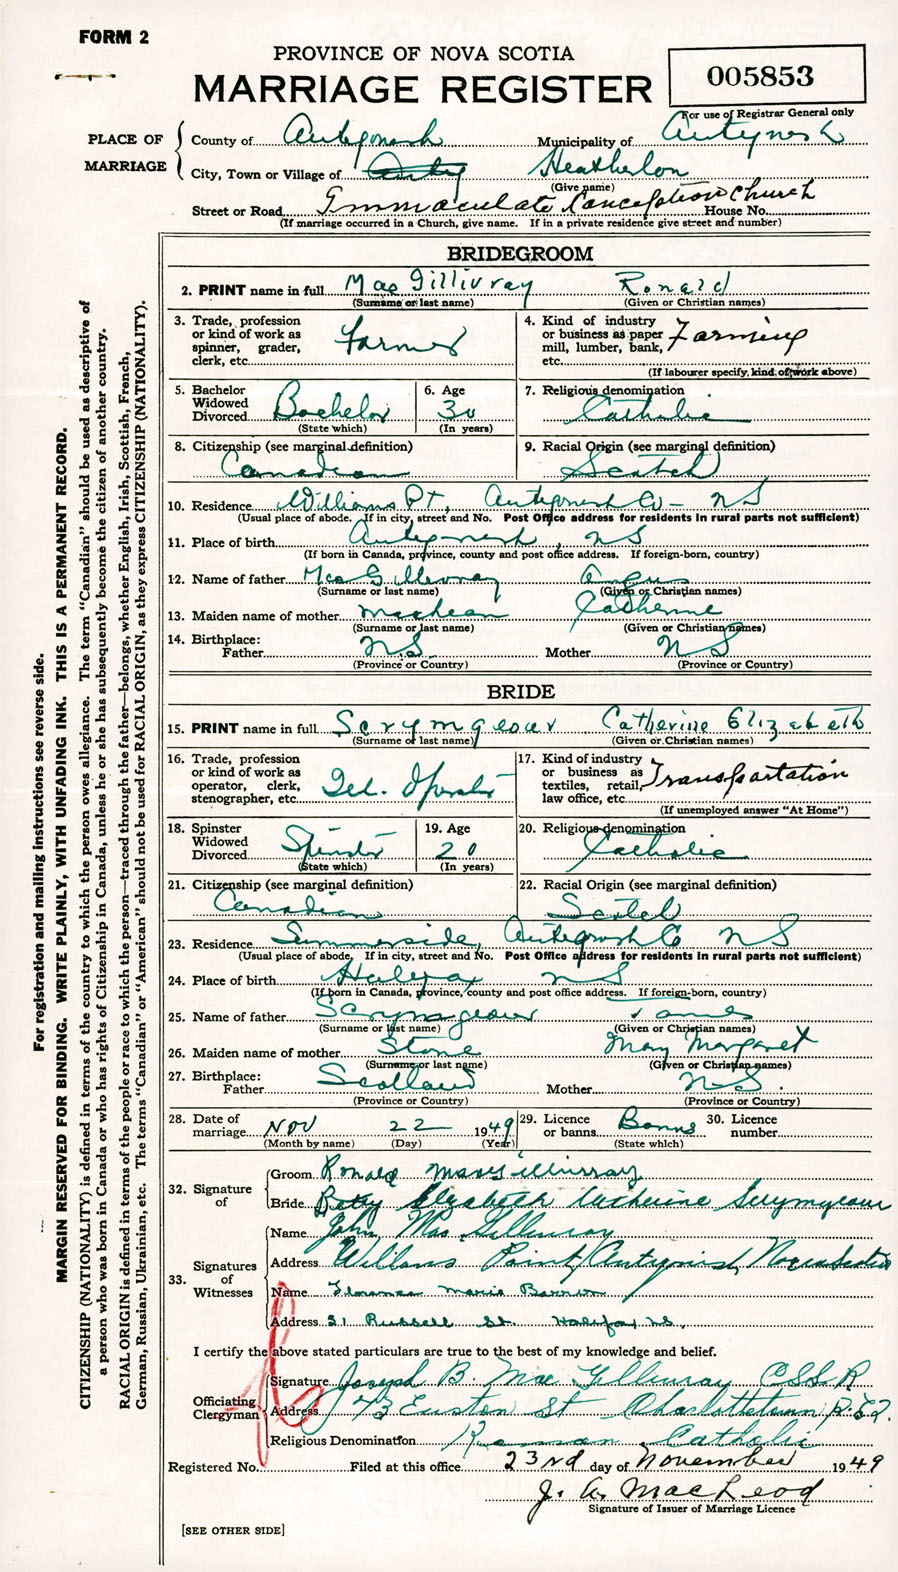 FORM 2
PROVINCE OF NOVA SCOTIA
MARRIAGE REGISTER
005853
For use of Registrar General only
PLACE OF MARRIAGE
County of Antigonish Municipality of Antigonish
City, Town or Village of Heatherton
(Give name)
Street or Road Immaculate Conception Church House No.
(If marriage occurred in a Church, give name. If in a private residence give street and number)
BRIDEGROOM
2. PRINT name in full MacGillivray Ronald
(Surname or last name) (Given or Christian names)
3. Trade, profession or kind of work as spinner, grader, clerk, etc. Farmer
4. Kind of industry or business as paper mill, lumber, bank, etc. Farming
(If labourer specify, kind of work above)
5. Bachelor Widowed Divorced Bachelor
(State which)
6. Age 30
(In years)
7. Religious denomination Catholic
8. Citizenship (see marginal definition) Canadian
9. Racial Origin (see marginal definition) Scotch
10. Residence Williams Pt, Antigonish Co - NS
(Usual place of abode. If in city, street and No. Post Office address for residents in rural parts not sufficient)
11. Place of birth Antigonish, NS
(If born in Canada, province, county and post office address. If foreign-born, country)
12. Name of father MacGillivray Angus
(Surname or last name) (Given or Christian names)
13. Maiden name of mother MacLean Catherine
(Surname or last name) (Given or Christian names)
14. Birthplace:
Father N.S. Mother N S
(Province or Country) (Province or Country)
BRIDE
15. PRINT name in full Scrymgeour Catherine Elizabeth
(Surname or last name) (Given or Christian names)
16. Trade, profession or kind of work as operator, clerk, stenographer, etc. Tel. Operator
17. Kind of industry or business as textiles, retail, law office, etc. Transportation
(If unemployed answer "At Home")
18. Spinster Widowed Divorced Spinster
(State which)
19. Age 20
(In years)
20. Religious denomination Catholic
21. Citizenship (see marginal definition) Canadian
22. Racial Origin (see marginal definition) Scotch
23. Residence Summerside, Antigonish Co NS
(Usual place of abode, If in city, street and No. Post Office address for residents in rural parts not sufficient)
24. Place of birth Halifax NS
(If born in Canada, province, county and post office address. If foreign-born, country)
25. Name of father Scrymgeour James
(Surname or last name) (Given or Christian names)
26. Maiden name of mother Stone Mary Margaret
(Surname or last name) (Given or Christian names)
27. Birthplace:
Father Scotland Mother N S.
(Province or Country) (Province or Country)
28. Date of marriage Nov 22 1949
(Month by name) (Day) (Year)
29. Licence or banns Banns
(State which)
30. Licence number
32. Signature of
Groom Ronald MacGillivray
Bride Betsy Elizabeth Catherine Scrymgeour
33. Signatures of Witnesses
Name John MacGillivray
Address Williams Point, Antigonish, Nova Scotia
Name Florence Marie Barron
Address 31 Russell St. Halifax, NS.
I certify the above stated particulars are true to the best of my knowledge and belief.
Officiating Clergyman
Signature Joseph B. MacGillivray CSSR
Address 73 Euston St Charlottetown P.E.I.
Religious Denomination Roman Catholic
Registered No. Filed at this office 23rd day of November 1949
J. A. MacLeod
Signature of Issuer of Marriage Licence
[SEE OTHER SIDE]
For registration and mailing instructions see reverse side.
MARGIN RESERVED FOR BINDING. WRITE PLAINLY, WITH UNFADING INK. THIS IS A PERMANENT RECORD.
CITIZENSHIP (NATIONALITY) is defined in terms of the country to which the person owes allegiance. The term "Canadian" should be used as descriptive of
a person who was born in Canada or who has rights of Citizenship in Canada, unless he or she has subsequently become the citizen of another country.
RACIAL ORIGIN is defined in terms of the people or race to which the person—traced through the father—belongs, whether English, Irish, Scottish, French,
German, Russian, Ukrainian, etc. The terms "Canadian" or "American" should not be used for RACIAL ORIGIN, as they express CITIZENSHIP (NATIONALITY).